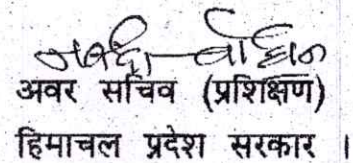 अवर सचिव (प्रशिक्षण)
हिमाचल प्रदेश सरकार ।